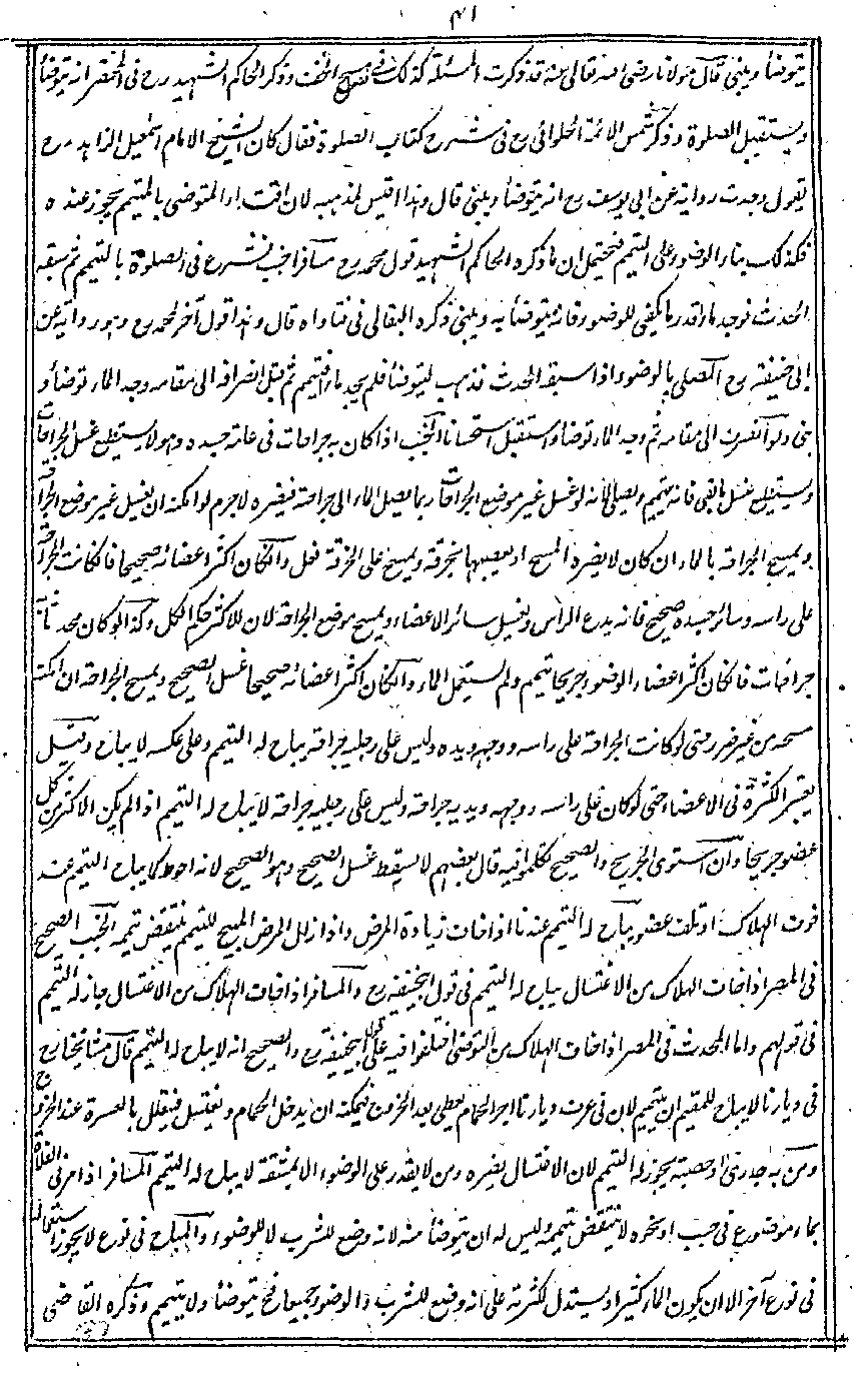 ٤١
يتوضأ ويبنى قال مولانا رضى الله تعالى عنه قد ذكرت المسئلة كذلك فى مسح الخف وذكر الحاكم الشهيد رح فى المختصر انه يتوضأ
ويستقبل الصلوة وذكر شمس الائمة الحلوائى رح فى شرح كتاب الصلوة فقال كان الشيخ الامام اسمعيل الزاهد رح
يقول وجدت رواية عن ابى يوسف رح انه يتوضأ ويبنى قال وهذا اقيس لمذهبه لان اقتداء المتوضى بالمتيمم يجوز عنده
فكذلك بناء الوضوء على التيمم فيحتمل ان ما ذكره الحاكم الشهيد قول محمد رح مسافر اجنب فشرع فى الصلوة بالتيمم ثم سبقه
الحدث فوجد ماء قدر ما يكفى للوضوء فانه يتوضأ به ويبنى ذكره البقالى فى فتاواه قال وهذا قول آخر لمحمد رح وهو رواية عن
ابى حنيفة رح المصلى بالوضوء اذا سبقه الحدث فذهب ليتوضأ فلم يجد ماء فتيمم ثم قبل انصرافه الى مقامه وجد الماء توضأ و
بنى ولو انصرف الى مقامه ثم وجد الماء توضأ واستقبل استحسانا الجنب اذا كان به جراحات فى عامة جسده وهو لا يستطيع غسل الجراحات
ويستطيع غسل ما بقى فانه يتيمم ويصلى لانه لو غسل غير موضع الجراحات ربما يصل الماء الى جراحة فيضره لاجرم لو امكنه ان يغسل غير موضع الجراحة
ويمسح الجراحة بالماء ان كان لا يضره المسح او يعصبها بخرقة ويمسح على الخرقة فعل وان كان اكثر اعضائه صحيحا فان كانت الجراحة
على راسه وسائر جسده صحيح فانه يدع الراس ويغسل سائر الاعضاء ويمسح موضع الجراحة لان للاكثر حكم الكل وكذا لو كان محدثا به
جراحات فان كان اكثر اعضاء الوضوء جريحا تيمم ولم يستعمل الماء وان كان اكثر اعضائه صحيحا غسل الصحيح ويمسح الجراحة ان امكنه
مسحه من غير ضرر حتى لو كانت الجراحة على راسه ووجهه ويده وليس على رجليه جراحة يباح له التيمم وعلى عكسه لا يباح وقيل
يعتبر الكثرة فى الاعضاء حتى لو كان على راسه ووجهه ويديه جراحة وليس على رجليه جراحة لا يباح له التيمم اذا لم يكن الاكثر من كل
عضو جريحا وان استوى الجريح والصحيح تكلموا فيه قال بعضهم لا يسقط غسل الصحيح وهو الصحيح لانه احوط كما يباح التيمم عند
خوف الهلاك او تلف عضو يباح له التيمم عندنا اذا خاف زيادة المرض واذا زال المرض المبيح للتيمم ينتقض تيممه الجنب الصحيح
فى المصر اذا خاف الهلاك من الاغتسال يباح له التيمم فى قول ابيحنيفة رح والمسافر اذا خاف الهلاك من الاغتسال جاز له التيمم
فى قولهم واما المحدث فى المصر اذا خاف الهلاك من التوضئ اختلفوا فيه على قول ابيحنيفة رح والصحيح انه لا يباح له التيمم قال مشائخنا رح
فى ديارنا لا يباح للمقيم ان يتيمم لان فى عرف ديارنا اجر الحمام يعطى بعد الخروج فيمكنه ان يدخل الحمام ويغتسل فيتعلل بالعسرة عند الخروج
ومن به جدرى او حصبة يجوز له التيمم لان الاغتسال يضره ومن لا يقدر على الوضوء الا بمشقة لا يباح له التيمم المسافر اذا مر فى الفلاة
بماء موضوع فى حب او نحوه لا ينتقض تيممه وليس له ان يتوضأ منه لانه وضع للشرب لا للوضوء والمباح فى نوع لا يجوز استعماله
فى نوع آخر الا ان يكون الماء كثيرا ويستدل بكثرته على انه وضع للشرب والوضوء جميعا فح يتوضأ ولا يتيمم وذكره القاضى